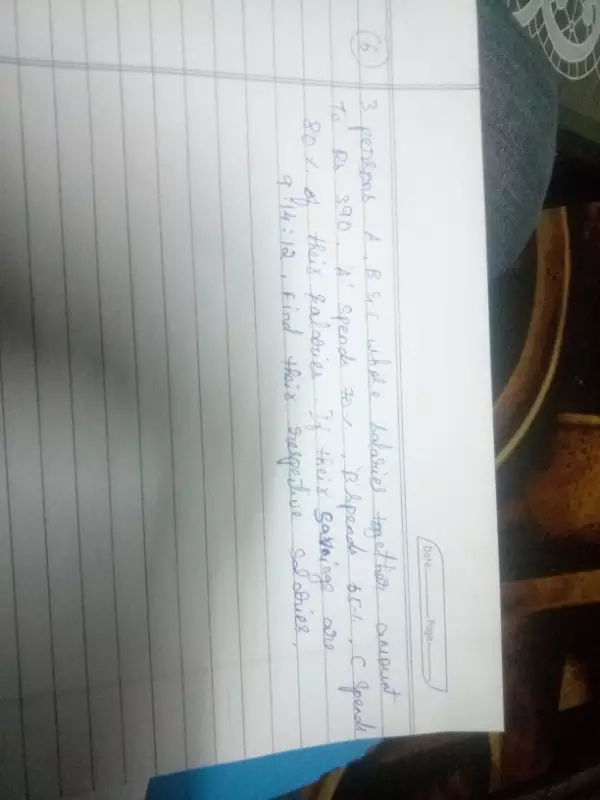 Date Page
(6) 3 persons A, B & C whose salaries together amount
to Rs 390. 'A' spends 70%, 'B spends 65%, C spends
80% of their salaries. If their savnings are
9:14:12, Find their respective salaries.